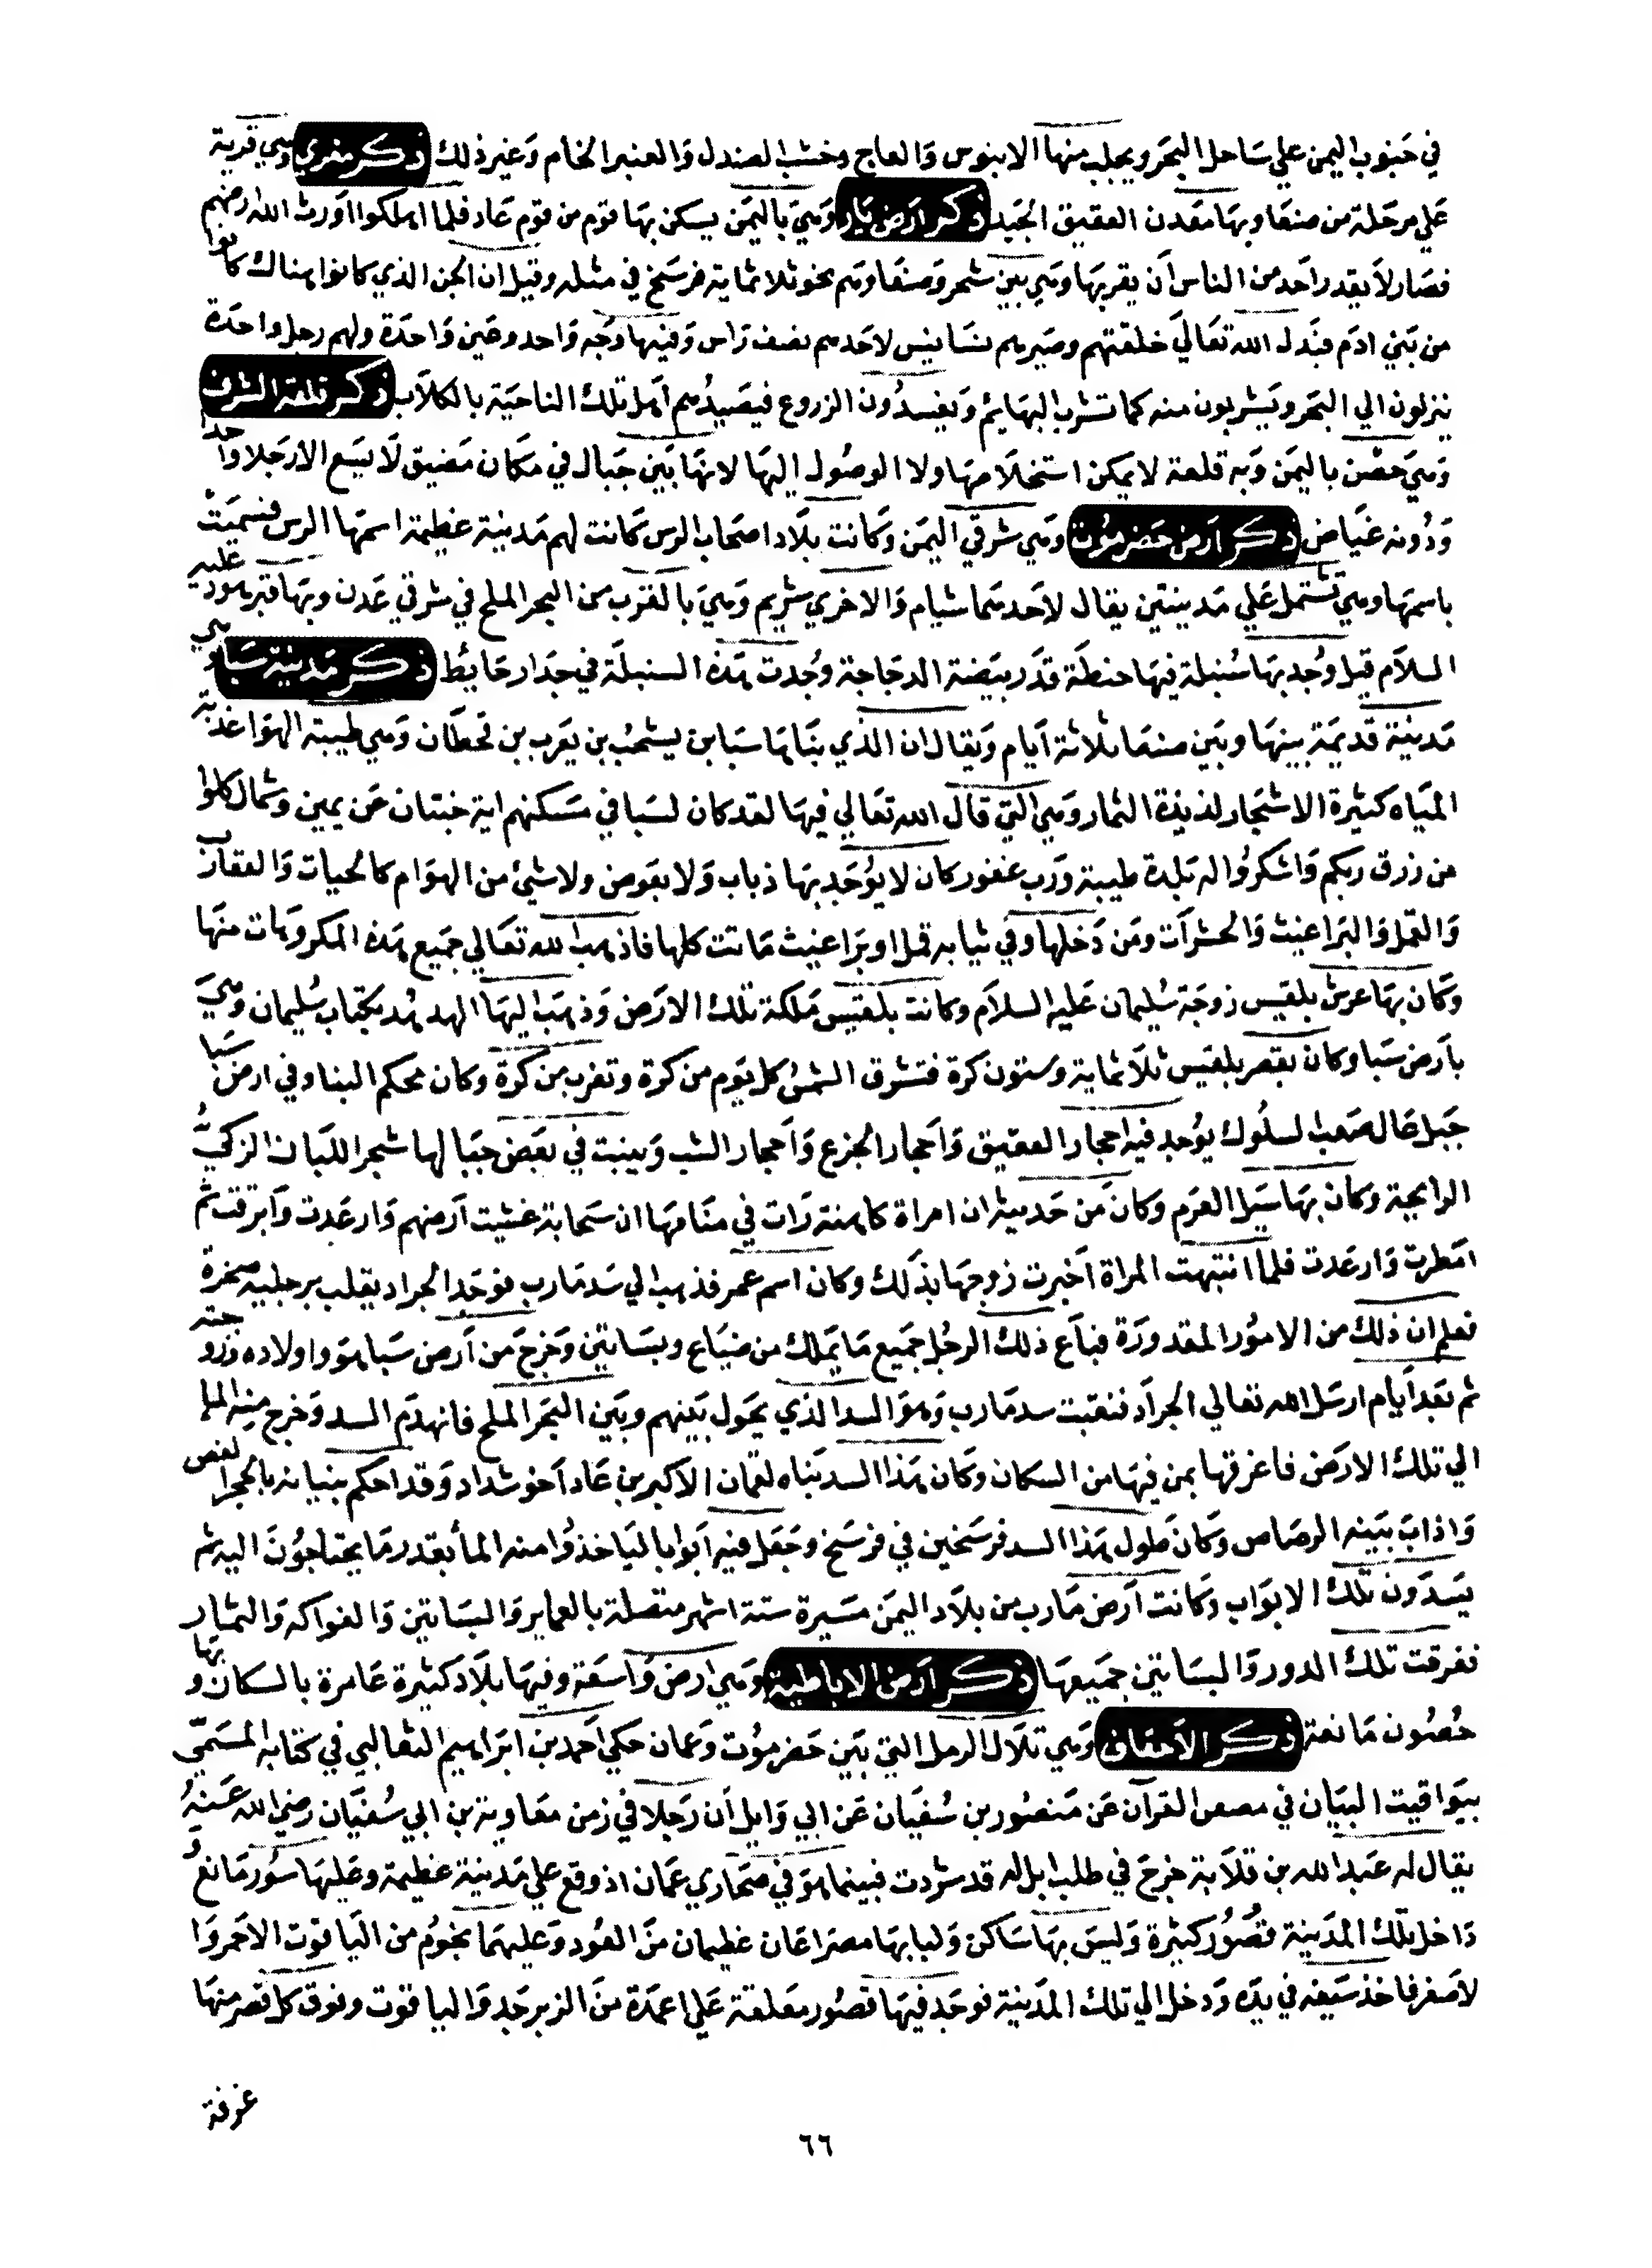 في جنوب اليمن علي ساحل البحر ويجلب منها الابنوس والعاج وخشب الصندل والعنبر الخام وغير ذلك ذكر مقري وهي قرية
علي مرحلة من صنعا وبها معدن العقيق الجيد ذكر ارض وبار وهي باليمن يسكن بها قوم من قوم عاد فلما اهلكوا اورث الله ارضهم
فصار لا يقدر احد من الناس ان يقربها وهي بين شحر وصنعا وهم نحو ثلاثماية فرسخ في مثله وقيل ان الجن الذي كانوا هناك كانوا
من بني ادم فبدل الله تعالي خلقتهم وصيرهم نسانيس لاحدهم نصف راس وفيها وجه واحد وعين واحدة ولهم رجل واحدة
ينزلون الي البحر ويشربون منه كما تشرب البهايم ويفسدون الزروع فيصيدهم اهل تلك الناحية بالكلاب ذكر قلعة الشرف
وهي حصن باليمن وبه قلعة لا يمكن استخلاصها ولا الوصول اليها لانها بين جبال في مكان مضيق لا يسع الا رجلا واحدا
ودونه غياض ذكر ارض حضرموت وهي شرقي اليمن وكانت بلاد اصحاب الرس كانت لهم مدينة عظيمة اسمها الرس فسميت
باسمها وهي تشتمل علي مدينتين يقال لاحدهما شبام والاخري شريم وهي بالقرب من البحر الملح في شرقي عدن وبها قبر هود عليه
السلام قيل وجد بها سنبلة فيها حنطة قدر بيضة الدجاجة وجدت هذه السنبلة في جدار حايط ذكر مدينة سبا وهي
مدينة قديمة بينها وبين صنعا ثلاثة ايام ويقال ان الذي بناها سبا بن يشجب بن يعرب بن قحطان وهي طيبة الهوا عذبة
المياه كثيرة الاشجار لذيذة الثمار وهي التي قال الله تعالي فيها لقد كان لسبا في مسكنهم اية جنتان عن يمين وشمال كلوا
من رزق ربكم واشكروا له بلدة طيبة ورب غفور كان لا يوجد بها ذباب ولا بعوض ولا شئ من الهوام كالحيات والعقارب
والقمل والبراغيث والحشرات ومن دخلها وفي ثيابه قمل او براغيث ماتت كلها فاذهب الله تعالي جميع هذه المكروهات منها
وكان بها عرش بلقيس زوجة سليمان عليه السلام وكانت بلقيس ملكة تلك الارض وذهب اليها الهدهد بكتاب سليمان وهي
بارض سبا وكان بقصر بلقيس ثلاثماية وستون كرة فتشرق الشمس كل يوم من كرة وتغرب من كرة وكان محكم البنا وفي ارض سبا
جبل عال صعب السلوك يوجد فيه احجار العقيق واحجار الجزع واحجار الشب وينبت في بعض جبالها شجر اللبان الزكي
الرايحة وكان بها سيل العرم وكان من حديثه ان امراة كاهنة رات في منامها ان سحابة غشيت ارضهم وارعدت وابرقت ثم
امطرت وارعدت فلما انتبهت المراة اخبرت زوجها بذلك وكان اسم عمر فذهب الي سد مارب فوجد الجراد يقلب برجليه صخرة
فعلم ان ذلك من الامور المقدورة فباع ذلك الرجل جميع ما يملك من ضياع وبساتين وخرج من ارض سبا هو واولاده وزوجته
ثم بعد ايام ارسل الله تعالي الجراد فنقبت سد مارب وهو السد الذي يحول بينهم وبين البحر الملح فانهدم السد وخرج منه الما
الي تلك الارض فاغرقها بمن فيها من السكان وكان هذا السد بناه لقمان الاكبر بن عاد اخو شداد وقد احكم بنيانه بالحجر
واذاب بينه الرصاص وكان طول هذا السد فرسخين في فرسخ وجعل فيه ابوابا لياخذوا منه الما بقدر ما يحتاجون اليه ثم
يسدون تلك الابواب وكانت ارض مارب من بلاد اليمن مسيرة ستة اشهر متصلة بالعماير والبساتين والفواكه والثمار
فغرقت تلك الدور والبساتين جميعها ذكر ارض الاباطية وهي ارض واسعة وفيها بلاد كثيرة عامرة بالسكان وبها
حصون مانعة ذكر الاحقاف وهي تلال الرمل التي بين حضرموت وعمان حكي احمد بن ابراهيم الثعالبي في كتابه المسمي
بيواقيت البيان في قصص القرآن عن منصور بن سفيان عن ابي وايل ان رجلا في زمن معاوية بن ابي سفيان رضي الله عنه
يقال له عبد الله بن قلابة خرج في طلب ابل له قد شردت فبينما هو في صحاري عمان اذ وقع علي مدينة عظيمة وعليها سور مانع
داخل تلك المدينة قصور كثيرة وليس بها ساكن ولبابها مصراعان عظيمان من العود وعليهما نجوم من الياقوت الاحمر وا
لاصفر فاخذ سيفه في يده ودخل الي تلك المدينة فوجد فيها قصور معلقة علي اعمدة من الزبرجد والياقوت وفوق كل قصر منها
غرفة
٦٦